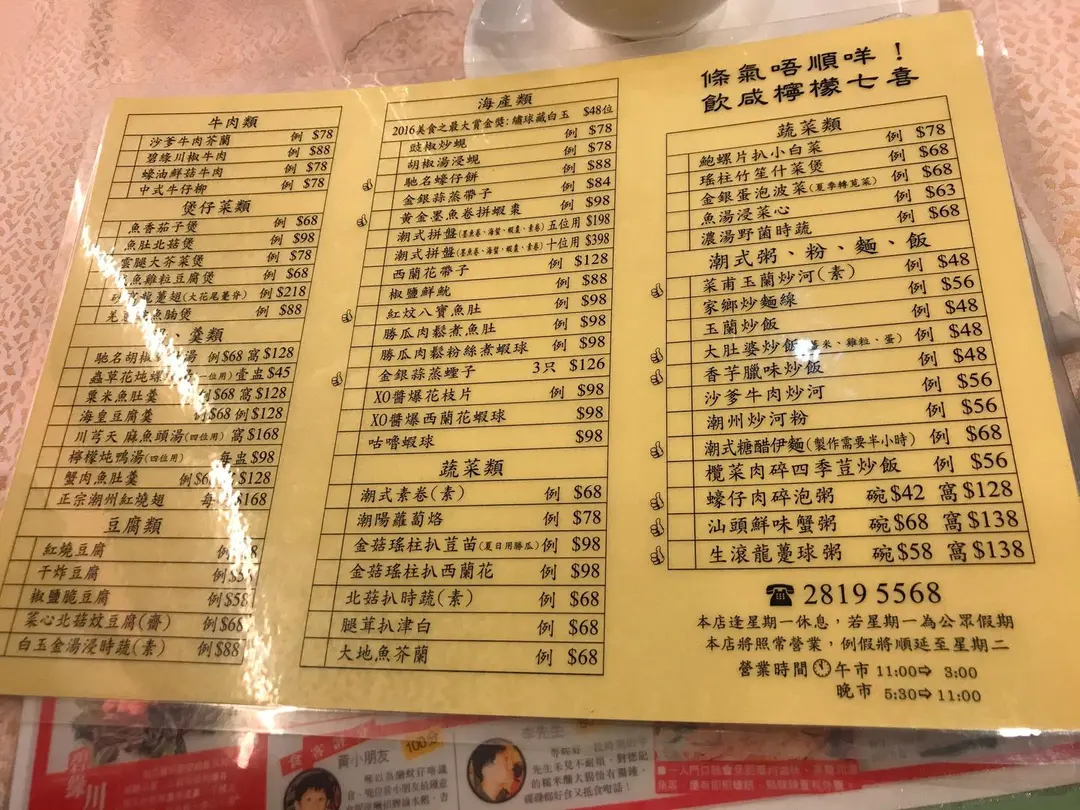 牛肉類
沙爹牛肉芥蘭 例 $78
碧綠川椒牛肉 例 $88
蠔油鮮菇牛肉 例 $78
中式牛仔柳 例 $78
煲仔菜類
魚香茄子煲 例 $68
魚肚北菇煲 例 $98
雲腿大芥菜煲 例 $78
魚雞粒豆腐煲 例 $68
龍躉翅(大花尾躉脊) 例 $218
例 $88
、羹類
馳名胡椒 湯 例 $68 窩 $128
蟲草花炖螺 (一位用) 壹盅 $45
粟米魚肚羹 例 $68 窩 $128
海皇豆腐羹 例 $68 例 $128
川芎天麻魚頭湯(四位用) 窩 $168
檸檬炖鴨湯(四位用) 每盅 $98
蟹肉魚肚羹 例 $68 $128
正宗潮州紅燒翅 每 $168
豆腐類
紅燒豆腐 例
干炸豆腐 例
椒鹽脆豆腐 例 $58
菜心北菇炆豆腐(齋) 例 $68
白玉金湯浸時蔬(素) 例 $88
海產類
2016美食之最大賞金獎:繡球藏白玉 $48位
豉椒炒蜆 例 $78
胡椒湯浸蜆 例 $78
馳名蠔仔餅 例 $88
金銀蒜蒸帶子 例 $84
黃金墨魚卷拼蝦棗 例 $98
潮式拼盤(墨魚卷、海蜇、蝦棗、素卷) 五位用 $198
潮式拼盤(墨魚卷、海蜇、蝦棗、素卷) 十位用 $398
西蘭花帶子 例 $128
椒鹽鮮魷 例 $88
紅炆八寶魚肚 例 $98
勝瓜肉鬆煮魚肚 例 $98
勝瓜肉鬆粉絲煮蝦球 例 $98
金銀蒜蒸蟶子 3只 $126
XO醬爆花枝片 例 $98
XO醬爆西蘭花蝦球 $98
咕嚕蝦球 $98
蔬菜類
潮式素卷(素) 例 $68
潮陽蘿蔔烙 例 $78
金菇瑤柱扒荳苗(夏日用勝瓜) 例 $98
金菇瑤柱扒西蘭花 例 $98
北菇扒時蔬(素) 例 $68
腿茸扒津白 例 $68
大地魚芥蘭 例 $68
條氣唔順咩!
飲咸檸檬七喜
蔬菜類
鮑螺片扒小白菜 例 $78
瑤柱竹笙什菜煲 例 $68
金銀蛋泡波菜(夏季轉莧菜) 例 $68
魚湯浸菜心 例 $63
濃湯野菌時蔬 例 $68
潮式粥、粉、麵、飯
菜甫玉蘭炒河(素) 例 $48
家鄉炒麵線 例 $56
玉蘭炒飯 例 $48
大肚婆炒飯( 米、雞粒、蛋) 例 $48
香芋臘味炒飯 例 $48
沙爹牛肉炒河 例 $56
潮州炒河粉 例 $56
潮式糖醋伊麵(製作需要半小時) 例 $68
欖菜肉碎四季荳炒飯 例 $56
蠔仔肉碎泡粥 碗 $42 窩 $128
汕頭鮮味蟹粥 碗 $68 窩 $138
生滾龍躉球粥 碗 $58 窩 $138
☎ 2819 5568
本店逢星期一休息,若星期一為公眾假期
本店將照常營業,例假將順延至星期二
營業時間 午市 11:00⇨ 3:00
晚市 5:30⇨ 11:00
黃小朋友
100分